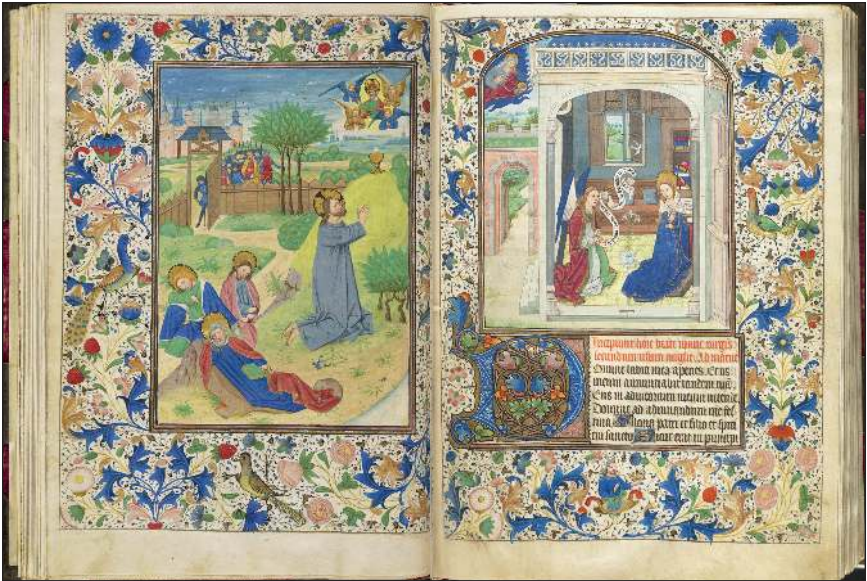 Incipiunt hore beate marie virginis
secundum usum anglie. Ad matut
Domine labia mea aperies. Et os
meum annunciabit laudem tuam.
Deus in adiutorium meum intende.
Domine ad adiuvandum me fes
tina. Gloria patri et filio et spiri
tui sancto. Sicut erat in principi